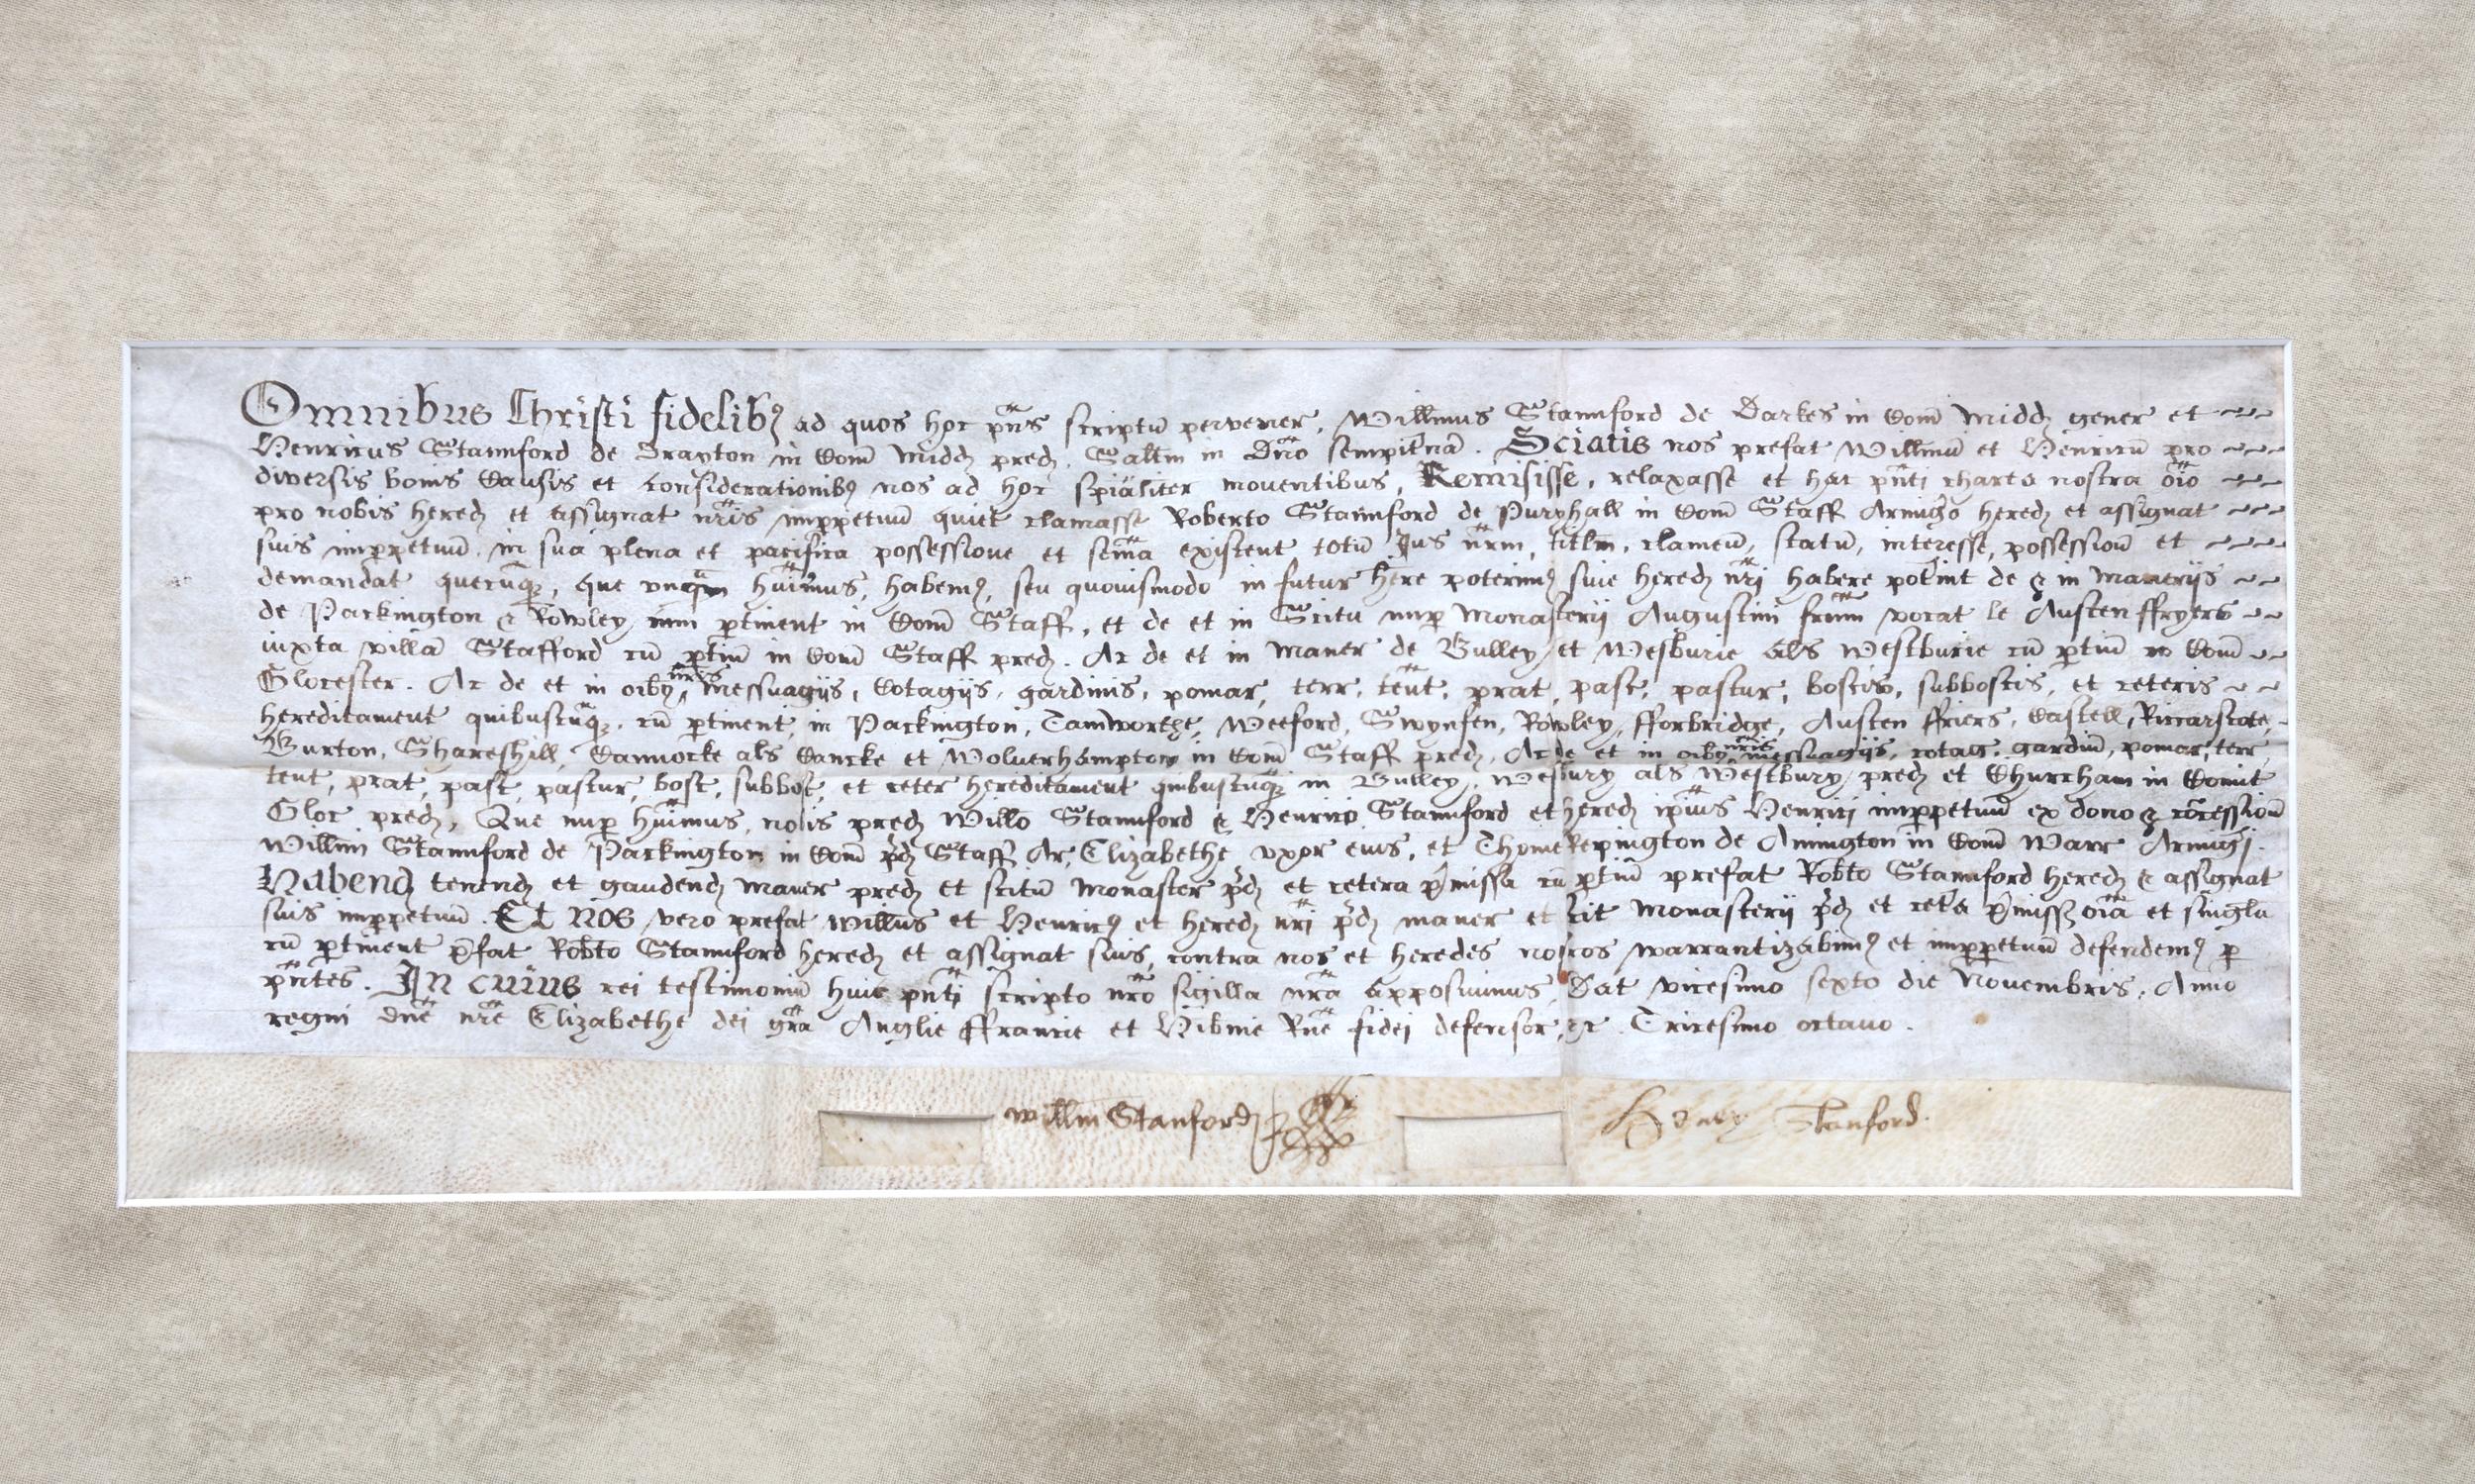 Omnibus Christi fidelibȝ ad quos hoc pñs scriptũ pervener, Willm̃us Stannford de Darkes in Com̃ Midd gener et
Henricus Stannford de Drayton in Com̃ Midd pred. Saltm̃ in Dño sempitnã. Sciatis nos prefat Willmũ et Henricũ pro
diversis bonis Causis et considerationibȝ nos ad hoc sp̃ialiter moventibus, Remisisse, relaxasse et hac pñti charta nostra oĩo
pro nobis hered et assignat nr̃is imppetuũ quiet clamasse Roberto Stannford de Puryhall in Com̃ Staff Armig̃o hered et assignat
suis imppetuũ in sua plena et pacifica possessione et sem̃a existent totũ Jus nr̃m, titlm̃, clameũ, statũ, interesse, possessionũ et
demandat quecũqȝ, que unqm hũimus, habemȝ, seu quovismodo in futur here poterimȝ sive hered nr̃i habere potint de & in Maneriis
de Packington & Rowley cum ptinent in Com̃ Staff, et de et in Scitu nup Monasterij Augustini frum̃ vocat le Austen ffryers
iuxta villã Stafford cũ ptiñ in Com̃ Staff pred. Ac de et in Maner de Bulley et Wesburie als Westburie cũ ptiñ in Com̃
Glocester. Ac de et in oibȝ nr̃is Messuagijs, Cotagijs, gardinis, pomar, terr, teñt, prat, past, pastur, boscis, subboscis, et ceteris
hereditament quibuscũqȝ, cũ ptinent, in Packington, Tamworthe, Weeford, Swynfen, Rowley, fforbridge, Austen ffriers, Castell, Riccarscote,
Burton, Shareshill, Cannocke als Cancke et Wolverhampton in Com̃ Staff pred, Ac de et in oibȝ nr̃is messuagijs, cotag, gardiñ, pomar, terr
tent, prat, past, pastur, bosc, subbosc, et ceter hereditament quibuscũqȝ in Bulley, Wesbury als Westbury pred et Churcham in Comit
Gloc pred, Que nup hũimus, nobis pred Willo Stannford & Henrico Stannford et hered ip̃ius Henrici imppetuũ ex dono & cõcessionũ
Willmi Stannford de Packington in Com̃ p̃d Staff Ar, Elizabethe uxor eius, et Thome Repington de Amington in Com̃ Warr Armig̃i.
Habend tenend et gaudend Maner pred et scitũ Monaster p̃d et cetera p̃missa cũ ptiñ prefat Robto Stannford hered & assignat
suis imppetuũ. Et nos vero prefat Willm̃s et Henricȝ et hered nr̃i p̃d maner et scit Monasterij p̃d et cet̃a p̃miss oĩa et sing̃la
cũ ptinent p̃fat Robto Stannford hered et assignat suis, contra nos et heredes nostros warrantizabimȝ et imppetuũ defendemȝ p
pñtes. In cuius rei testimoniũ huic pñti scripto nr̃o sigilla nr̃a apposuimus, Dat vicesimo sexto die Novembris, Anno
regni dñe nr̃e Elizabethe dei gr̃a Anglie ffrancie et Hibnie Rñe fidei defensor, &c. Tricesimo octavo.
Willm̃ Stanford
Henry Stanford.